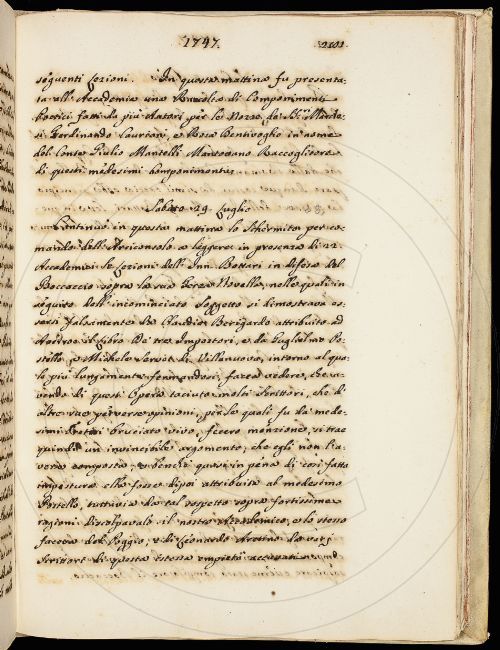 1747.
2101.
seguenti Lezioni. In questa mattina fu presenta-
ta all' Accademia una Raccolta di Componimenti
Poetici fatti da più Autori per le Nozze de SS.ri March.
si Ferdinando Lancioni, e Rosa Bentivoglio in nome
del Conte Giulio Mantelli Mantovano Raccoglitore
di questi medesimi componimenti.
Sabato 29. Luglio
Continuò in questa mattina lo Schermito per co-
mando dell' Arciconsolo a leggere in presenza di 22.
Accademici le Lezioni dell' Inn. Bottari in difesa del
Boccaccio sopra la sua terza Novella, nelle quali in
seguito dell' incominciato soggetto si dimostrava es-
sersi falsamente da Claudio Berigardo attribuito ad
Averroe il Libro De' tre Impostori, e da Guglielmo Po-
stello, e Michele Servet di Villanuova, intorno al qua-
le più lungamente fermandosi, facea vedere, che a-
vendo di questi l'opera taciuta molti Scrittori, che d'
altre sue perverse opinioni, per le quali fu da mede-
simi bruciato vivo, fecero menzione, si trae
quindi un invincibile argomento, che egli non l'a-
veva composta, e benchè quasi in pena di così fatta
impostura ella fosse dipoi attribuita al medesimo
Postello, tuttavia da tal sospetto sopra fortissime
ragioni discolpavalo il nostro Accademico, e lo stesso
faceva del Poggio, e di Leonardo Aretino da varj
Scrittori di questa stessa empietà accusati